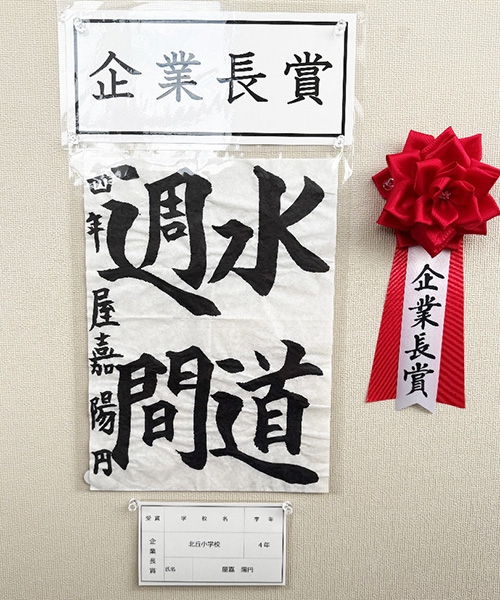 企業長賞
水道
週間
四年 屋嘉陽円
企業長賞
受賞 学校名 学年
企業長賞 北丘小学校 4年
氏名 屋嘉 陽円